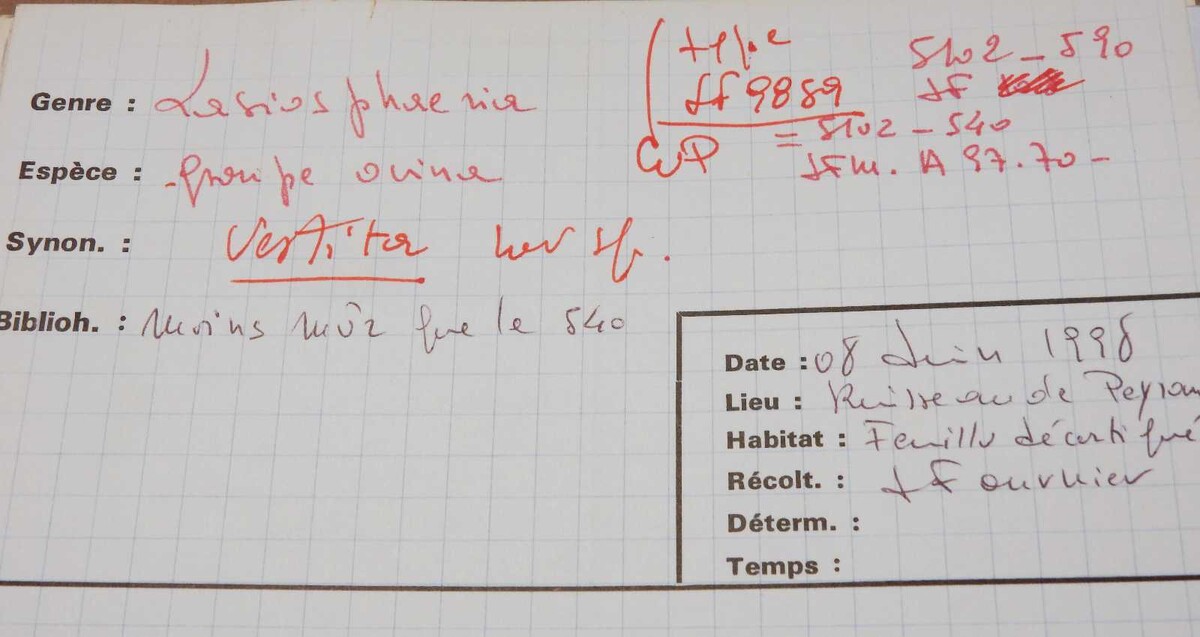 type 5102-590
JF 9889 JF
Genre : Lasiosphaeria
= 5102-540
CUP JF m. A 97.70-
Espèce : groupe ovina
Synon. : Vestita nov sp.
Biblioh. : Moins mûr que le 540
Date : 08 Juin 1998
Lieu : Ruisseau de Peyrau
Habitat : Feuillu décortiqué
Récolt. : J Fournier
Déterm. :
Temps :